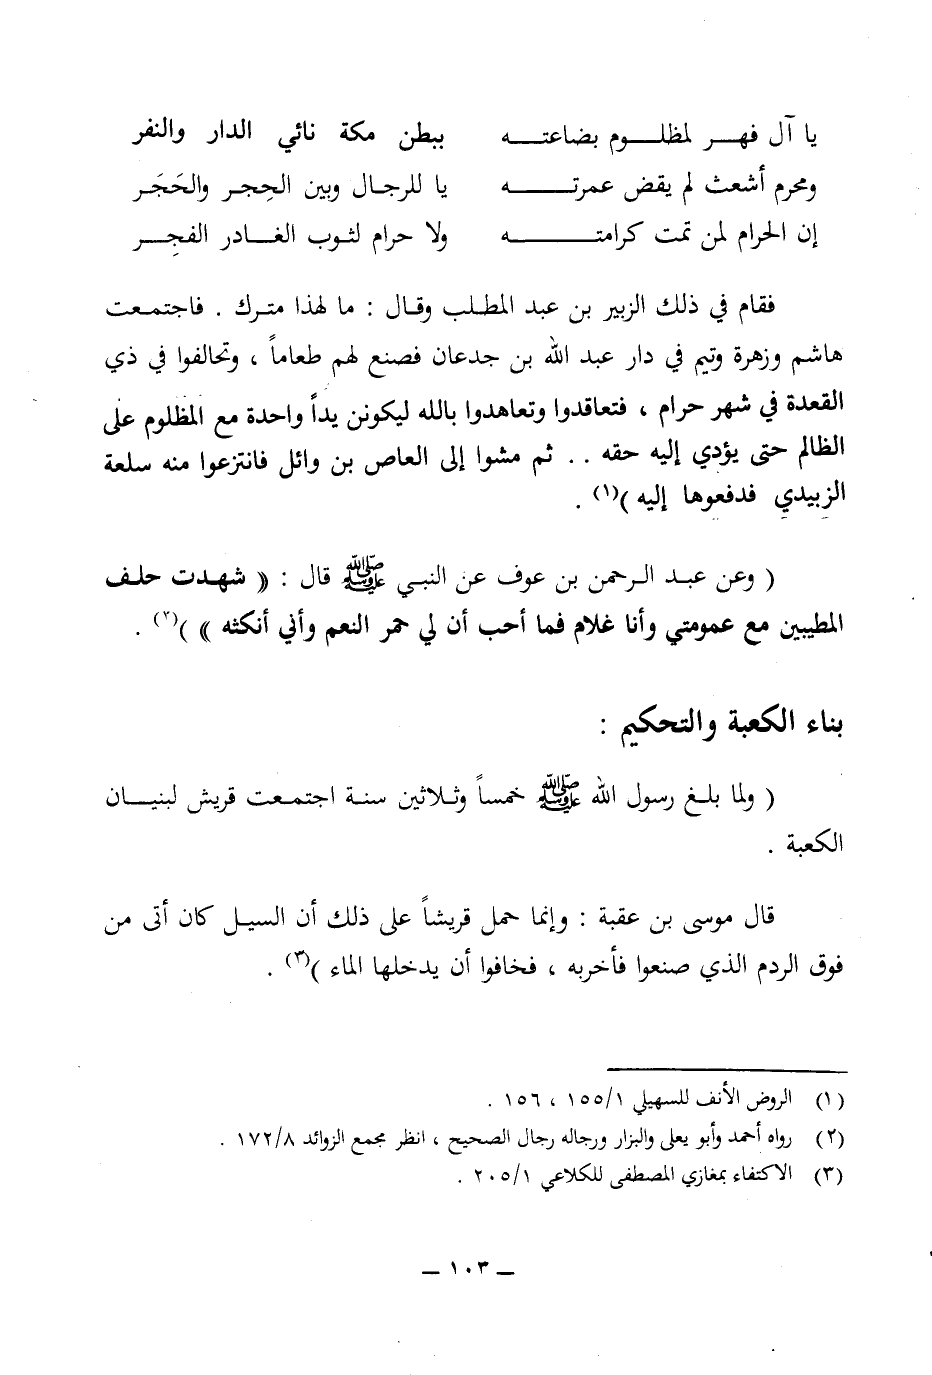 يا آل فهـــر لمظلـــوم بضاعتـــه ببطن مكة نائي الدار والنفر
ومحرم أشعث لم يقض عمرتـــــه يا للرجال وبين الحِجر والحَجَر
إن الحرام لمن تمت كرامتـــــه ولا حرام لثوب الغادر الفجر
فقام في ذلك الزبير بن عبد المطلب وقال : ما لهذا مترك . فاجتمعت
هاشم وزهرة وتيم في دار عبد الله بن جدعان فصنع لهم طعاماً ، وتحالفوا في ذي
القعدة في شهر حرام ، فتعاقدوا وتعاهدوا بالله ليكونن يداً واحدة مع المظلوم على
الظالم حتى يؤدي إليه حقه . . ثم مشوا إلى العاص بن وائل فانتزعوا منه سلعة
الزبيدي فدفعوها إليه )(١) .
( وعن عبد الرحمن بن عوف عن النبي ﷺ قال : « شهدت حلف
المطيبين مع عمومتي وأنا غلام فما أحب أن لي حمر النعم وأني أنكثه » )(٢) .
بناء الكعبة والتحكيم :
( ولما بلغ رسول الله ﷺ خمساً وثلاثين سنة اجتمعت قريش لبنيان
الكعبة .
قال موسى بن عقبة : وإنما حمل قريشاً على ذلك أن السيل كان أتى من
فوق الردم الذي صنعوا فأخربه ، فخافوا أن يدخلها الماء )(٣) .
(١) الروض الأنف للسهيلي ١٥٥/١ ، ١٥٦ .
(٢) رواه أحمد وأبو يعلى والبزار ورجاله رجال الصحيح ، انظر مجمع الزوائد ١٧٢/٨ .
(٣) الاكتفاء بمغازي المصطفى للكلاعي ٢٠٥/١ .
ـ ١٠٣ ـ